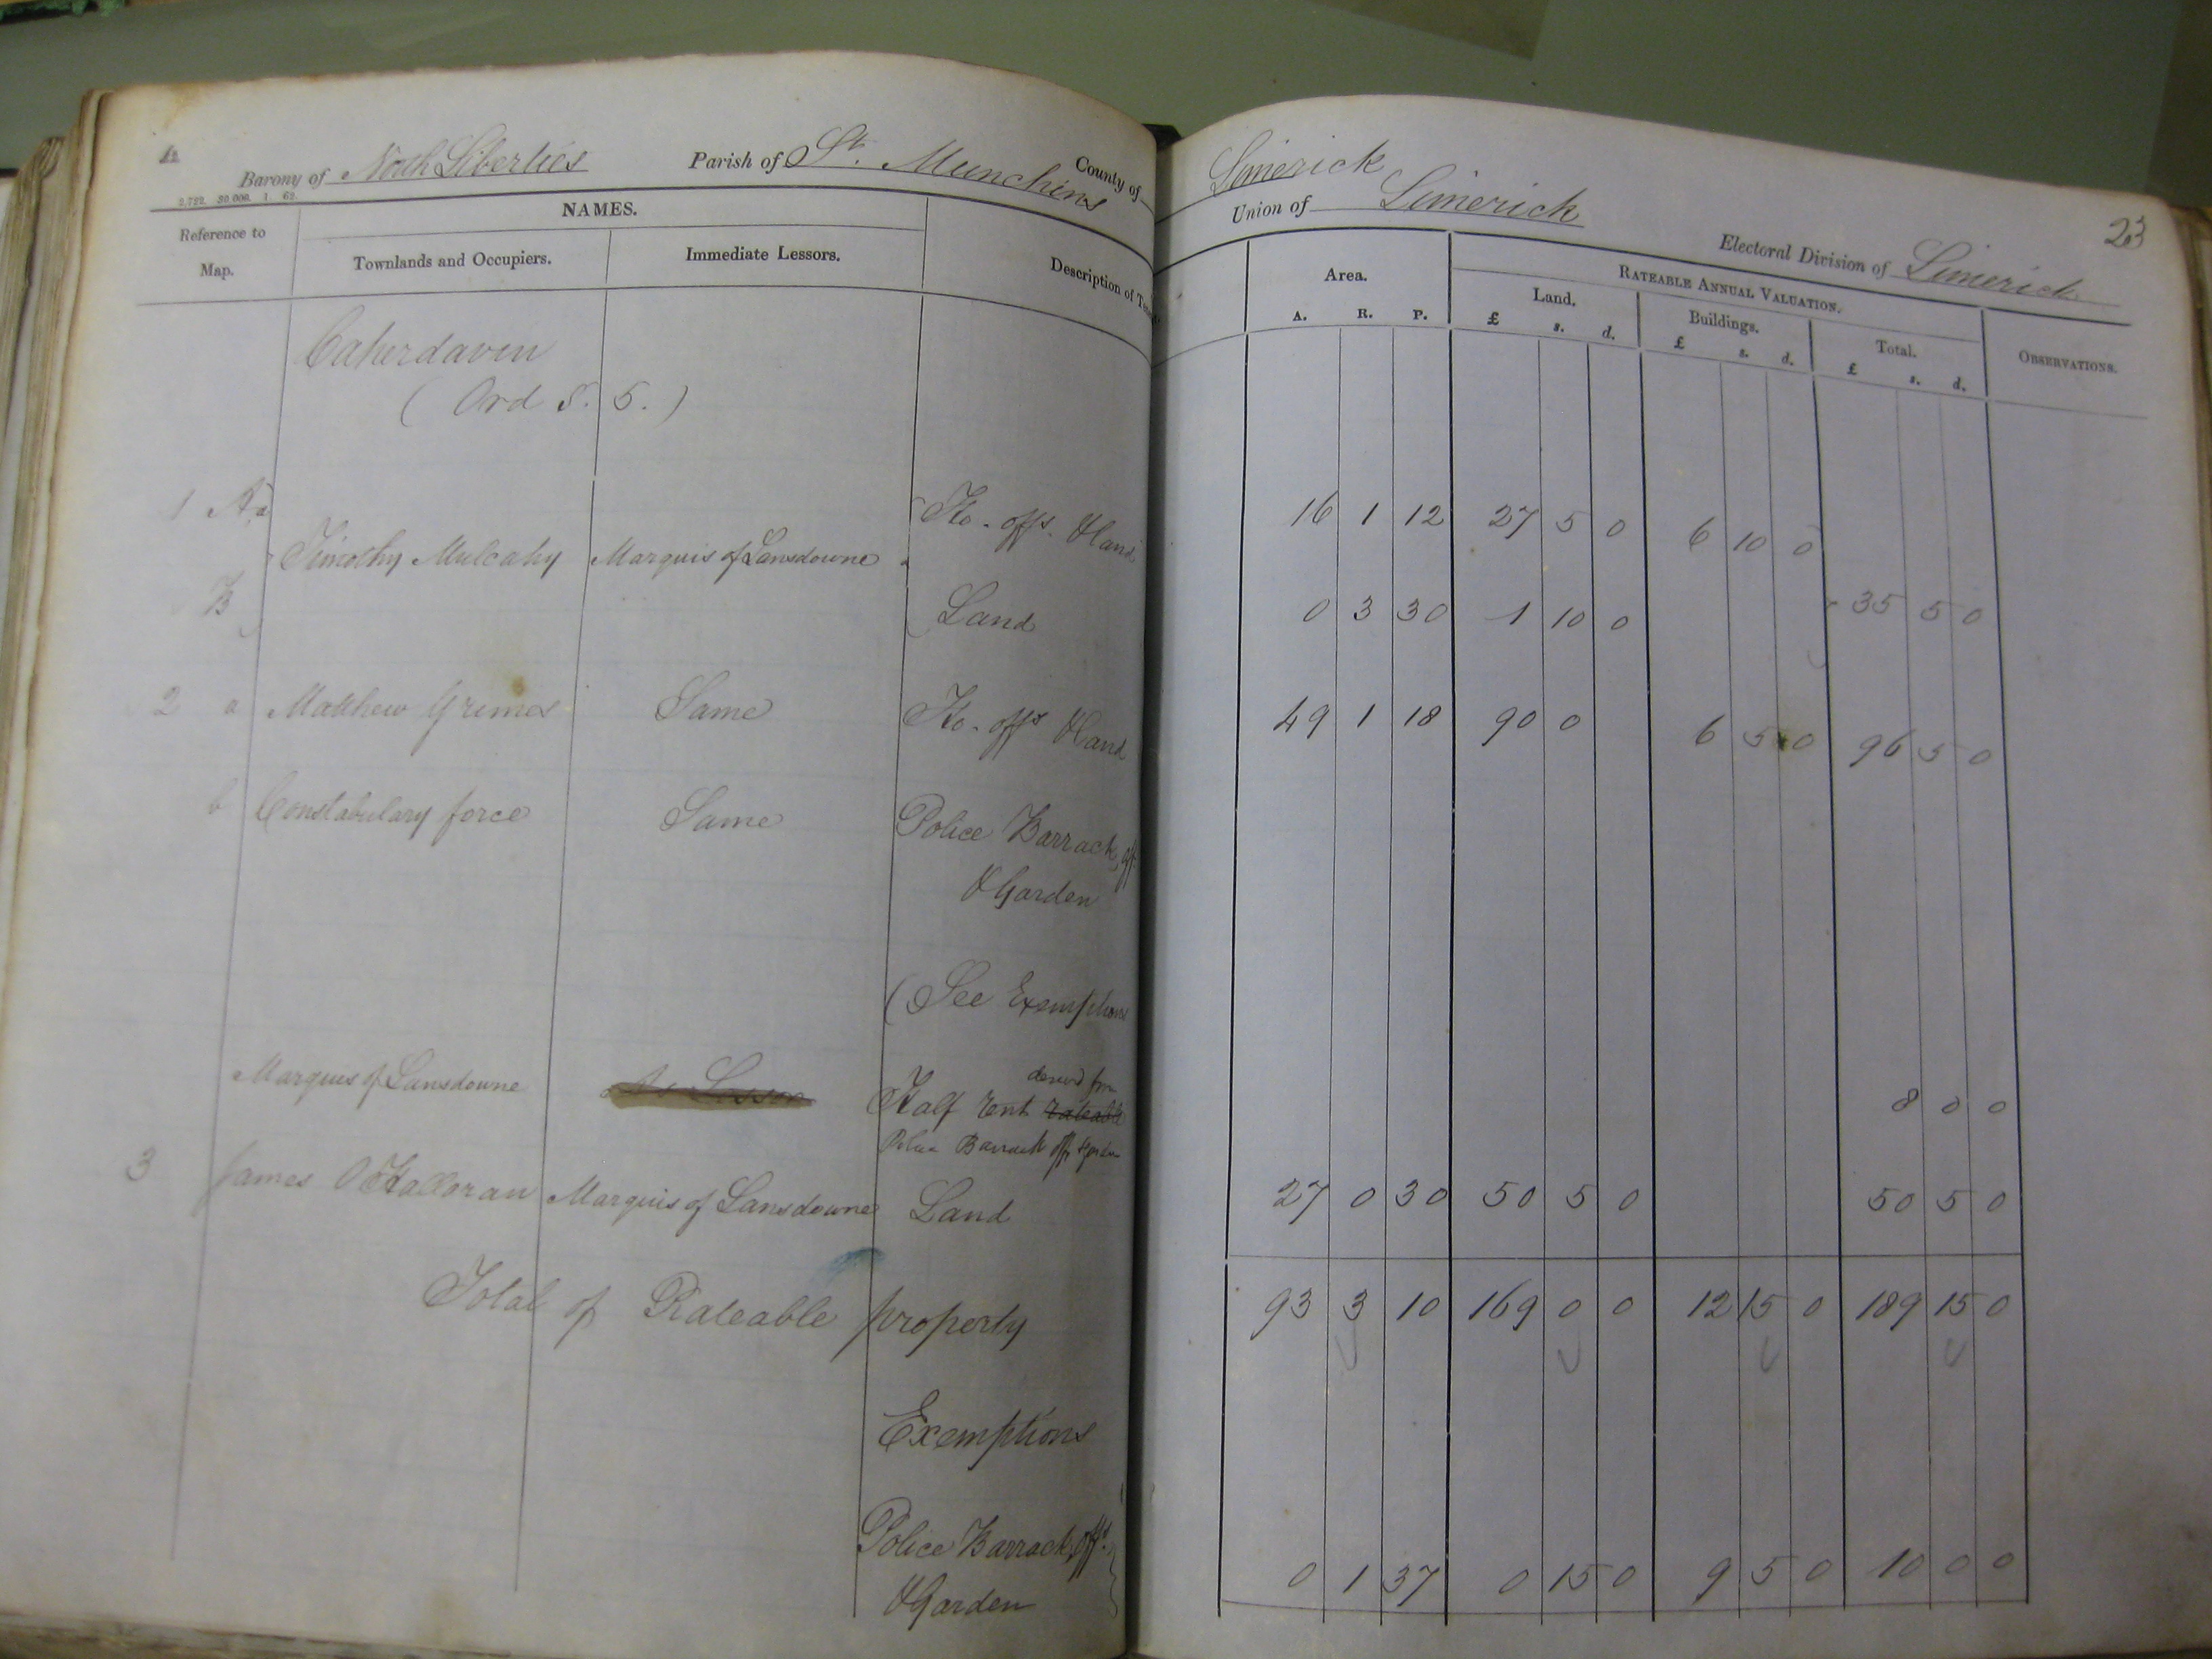 4
Barony of North Liberties Parish of St. Munchins County of Limerick
2,722. 30,000. 1. 62.
Union of Limerick
Electoral Division of Limerick
23
Reference to Map.
NAMES.
Townlands and Occupiers.
Immediate Lessors.
Description of Te
Area.
A. R. P.
RATEABLE ANNUAL VALUATION.
Land.
£ s. d.
Buildings.
£ s. d.
Total.
£ s. d.
OBSERVATIONS.
Caherdavin
(Ord S. 5.)
1 Aa Ho. offs. & land 16 1 12 27 5 0 6 10 0
Timothy Mulcahy Marquis of Lansdowne
B Land 0 3 30 1 10 0 35 5 0
2 a Matthew Grimes Same Ho. offs & land 49 1 18 90 0 6 5 0 96 5 0
b Constabulary force Same Police Barrack, off
& Garden
(See Exemptions
derived from
Marquis of Lansdowne Lessor Half rent rateable 8 0 0
Police Barrack offs & garden
3 James O'Halloran Marquis of Lansdowne Land 27 0 30 50 5 0 50 5 0
Total of Rateable property 93 3 10 169 0 0 12 15 0 189 15 0
Exemptions
Police Barrack, offs.
& Garden 0 1 37 0 15 0 9 5 0 10 0 0